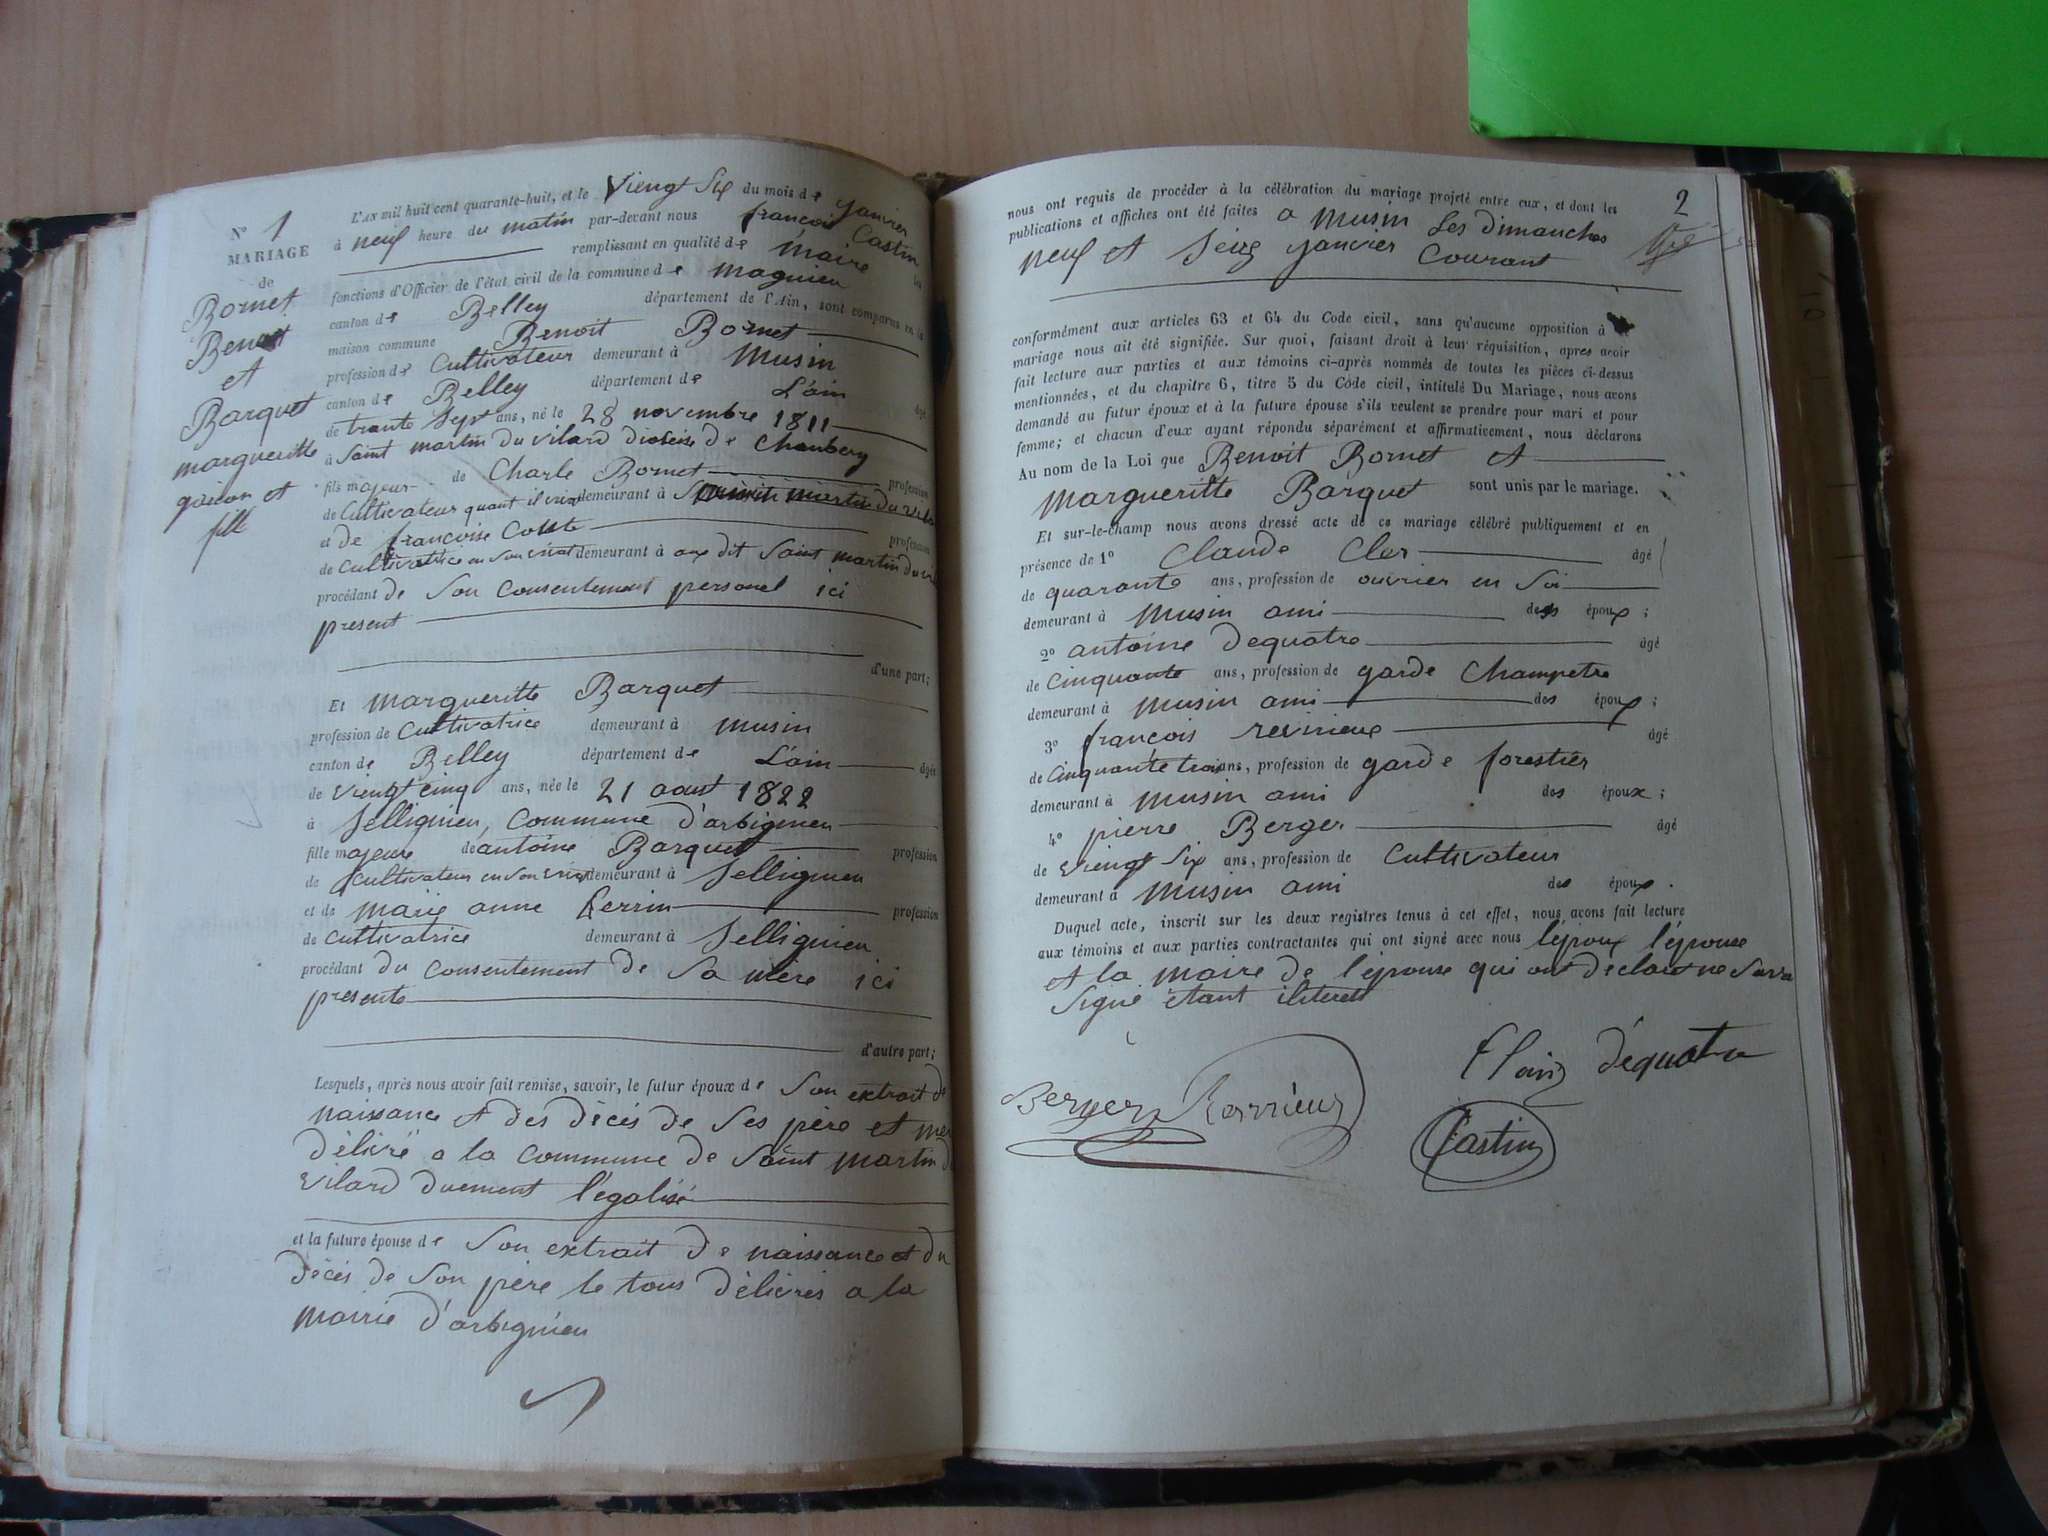 N° 1
MARIAGE
de
Bornet
Benoit
et
Barquet
margueritte
garson et
fille
L'AN mil huit cent quarante-huit, et le Viengt Six du mois de janvier
à neuf heure du matin par-devant nous françois Castin
remplissant en qualité de maire les
fonctions d'Officier de l'état civil de la commune de magnieu
canton de Belley département de l'Ain, sont comparus en la
maison commune Benoit Bornet
profession de Cultivateur demeurant à Musin
canton de Belley département de L'ain âgé
de trante Sept ans, né le 28 novembre 1811
à Saint martin du vilard diosèse de Chanbery
fils majeur de Charle Bornet profession
de Cultivateur quant il vivait demeurant à Saint martin du vilard
et de françoise Combe profession
de Cultivatrice en son vivat demeurant à aux dit Saint martin du
procédant de Son Consentement personel ici
present
d'une part;
Et margueritte Barquet
profession de Cultivatrice demeurant à musin
canton de Belley département de L'ain âgée
de vieng cinq ans, née le 21 aout 1822
à Sellignieu, Commune d'arbignieu
fille majeure de antoine Barquet profession
de Cultivateur en son vivat demeurant à Sellignieu
et de marie anne perrin profession
de cultivatrice demeurant à Sellignieu
procédant du Consentement de Sa mère ici
presente
d'autre part;
Lesquels, après nous avoir fait remise, savoir, le futur époux de Son extrait de
naissance et des décés de Ses père et mer
délivré a la Commune de Saint martin du
vilard duement légalisé
et la future épouse de Son extrait de naissance et du
décés de Son père le tous délivrés a la
mairie d'arbignieu
2
nous ont requis de procéder à la célébration du mariage projeté entre eux, et dont les
publications et affiches ont été faites a musin Les dimanches
neuf et Seize janvier Courant
conformément aux articles 63 et 64 du Code civil, sans qu'aucune opposition à
mariage nous ait été signifiée. Sur quoi, faisant droit à leur réquisition, apres avoir
fait lecture aux parties et aux témoins ci-après nommés de toutes les pièces ci-dessus
mentionnées, et du chapitre 6, titre 5 du Code civil, intitulé Du Mariage, nous avons
demandé au futur époux et à la future épouse s'ils veulent se prendre pour mari et pour
femme; et chacun d'eux ayant répondu séparément et affirmativement, nous déclarons
Au nom de la Loi que Benoit Bornet et
Margueritte Barquet sont unis par le mariage.
Et sur-le-champ nous avons dressé acte de ce mariage célébré publiquement et en
présence de 1° Claude Cler âgé
de quarante ans, profession de ouvrier en Soi
demeurant à Musin ami des époux;
2° antoine dequatre âgé
de cinquante ans, profession de garde Champetre
demeurant à musin ami des époux;
3° françois revirieux âgé
de cinquante trois ans, profession de garde forestier
demeurant à musin ami des époux;
4° pierre Berger âgé
de viengt Six ans, profession de Cultivateur
demeurant à musin ami des époux.
Duquel acte, inscrit sur les deux registres tenus à cet effet, nous avons fait lecture
aux témoins et aux parties contractantes qui ont signé avec nous l'époux l'épouse
et la maire de l'épouse qui ont déclaré ne Savoir
Signé étant iliterets
déquatre
Berger Revirieux
Castin